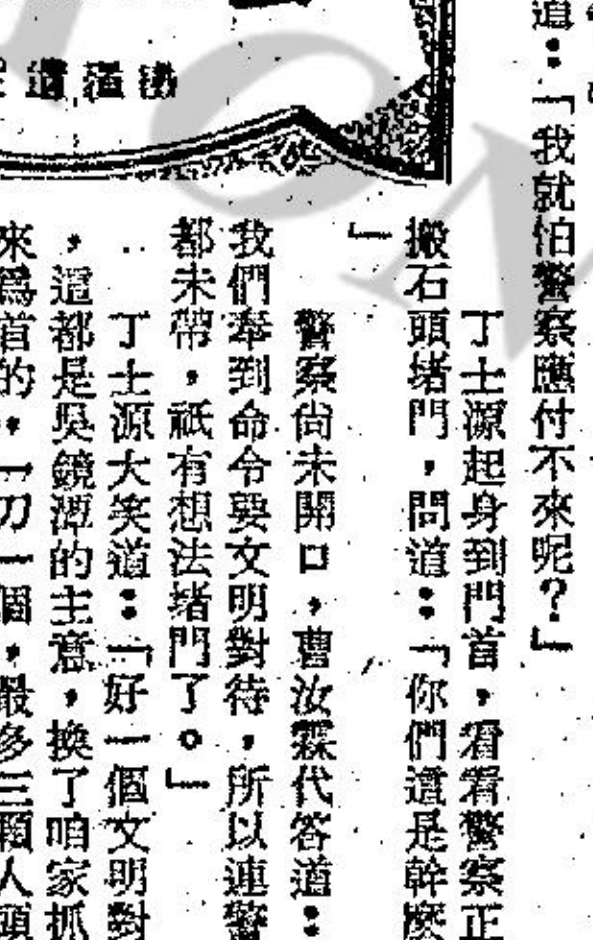 道：「我就怕警察應付不來呢？」
丁士源起身到門首，看看警察正
搬石頭堵門，問道：「你們這是幹麽
」
警察尚未開口，曹汝霖代答道：
我們奉到命令要文明對待，所以連警
都未帶，祇有想法堵門了。」
丁士源大笑道：「好一個文明對
，這都是吳鏡潭的主意，換了咱家抓
來爲首的，一刀一個，最多三顆人頭